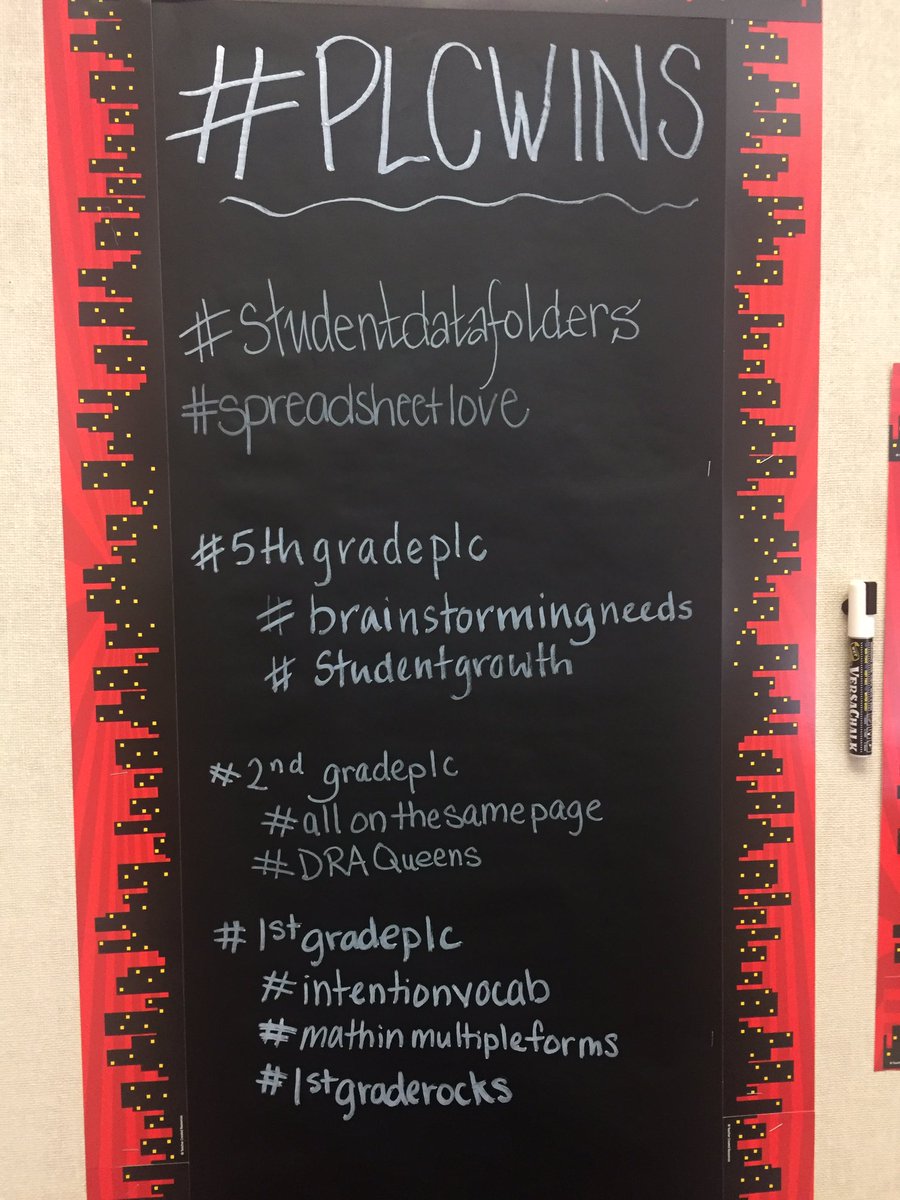 #PLCWINS
#studentdatafolders
#spreadsheetlove
#5thgradeplc
#brainstormingneeds
# Studentgrowth
#2nd gradeplc
#allonthesamepage
#DRAQueens
#1stgradeplc
#intentionvocab
#mathinmultipleforms
#1stgraderocks
VERSACHALK